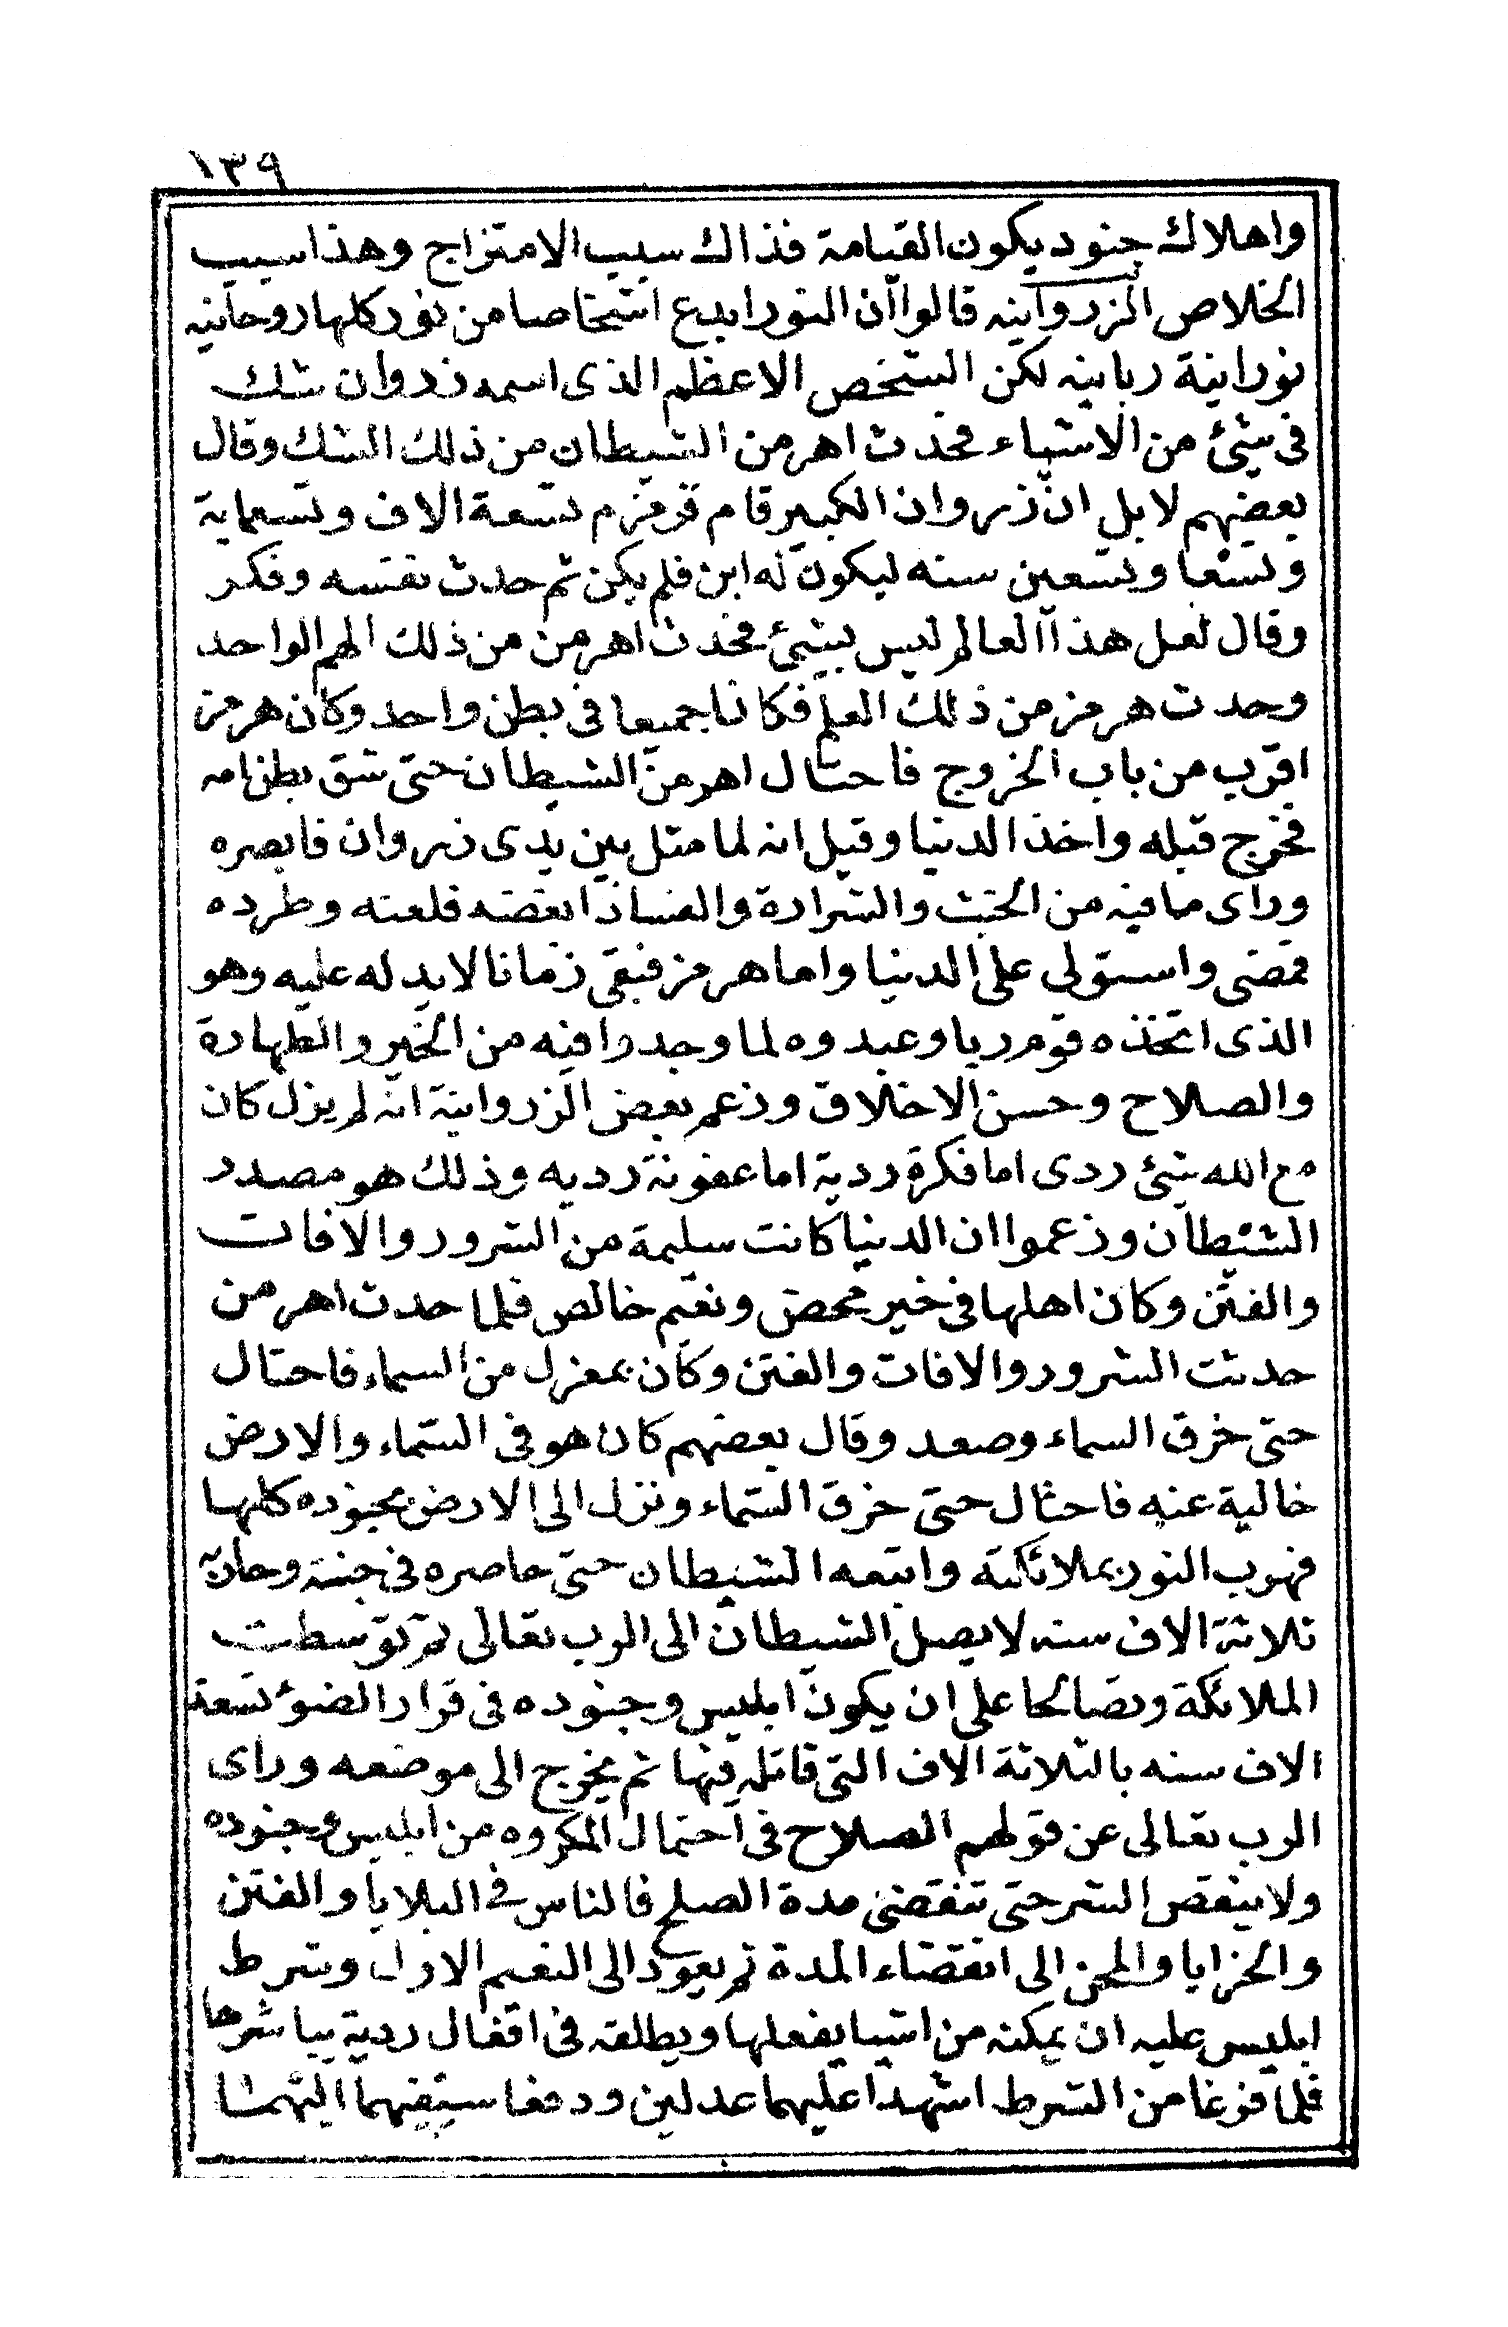 ١٣٩
واهلاك جنود يكون القيامة فذاك سبب الامتزاج وهذا سبب
الخلاص الزروانيه قالوا ان النور ابدع اشخاصا من نور كلها روحانيه
نورانية ربانيه لكن الشخص الاعظم الذى اسمه زروان شك
فى شئ من الاشياء فحدث اهرمن الشيطان من ذلك الشك وقال
بعضهم لا بل ان زروان الكبير قام فزمزم تسعة الاف وتسعماية
وتسعا وتسعين سنه ليكون له ابن فلم يكن ثم حدث نفسه وفكر
وقال لعل هذا العالم ليس بشئ فحدث اهرمن من ذلك الهم الواحد
وحدث هرمز من ذلك العلم فكانا جميعا فى بطن واحد وكان هرمز
اقرب من باب الخروج فاحتال اهرمن الشيطان حتى شق بطن امه
فخرج قبله واخذ الدنيا وقيل انه لما مثل بين يدى زروان فابصره
وراى ما فيه من الخبث والشرارة والفساد ابغضه فلعنه وطرده
فمضى واستولى على الدنيا واما هرمز فبقى زمانا لا يد له عليه وهو
الذى اتخذه قوم ربا وعبدوه لما وجدوا فيه من الخير والطهارة
والصلاح وحسن الاخلاق وزعم بعض الزروانية انه لم يزل كان
مع الله شئ ردى اما فكرة ردية اما عفونة رديه وذلك هو مصدر
الشيطان وزعموا ان الدنيا كانت سليمة من الشرور والافات
والفتن وكان اهلها فى خير محض ونعيم خالص فلما حدث اهرمن
حدثت الشرور والافات والفتن وكان بمعزل من السماء فاحتال
حتى خرق السماء وصعد وقال بعضهم كان هو فى السماء والارض
خالية عنه فاحتال حتى خرق السماء ونزل الى الارض بجنوده كلها
فهرب النور بملائكته واتبعه الشيطان حتى حاصره فى جنته وحاربه
ثلاثة الاف سنه لا يصل الشيطان الى الرب تعالى ثم توسطت
الملائكة وتصالحا على ان يكون ابليس وجنوده فى قرار الضوء تسعة
الاف سنه بالثلاثة الاف التى قاتله فيها ثم يخرج الى موضعه وراى
الرب تعالى عن قولهم الصلاح فى احتمال المكروه من ابليس وجنوده
ولا ينقص الشر حتى تنقضى مدة الصلح فالناس فى البلايا والفتن
والخزايا والمحن الى انقضاء المدة ثم يعود الى النعيم الاول وشرط
ابليس عليه ان يمكنه من اشيا يفعلها ويطلقه فى افعال ردية يباشرها
فلما فرغا من الشرط اشهدا عليهما عدلين ودفعا سيفيهما اليهما